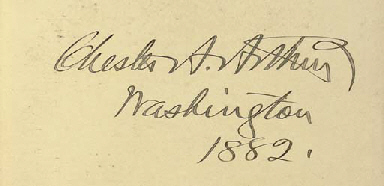 Chester A. Arthur
Washington
1882.